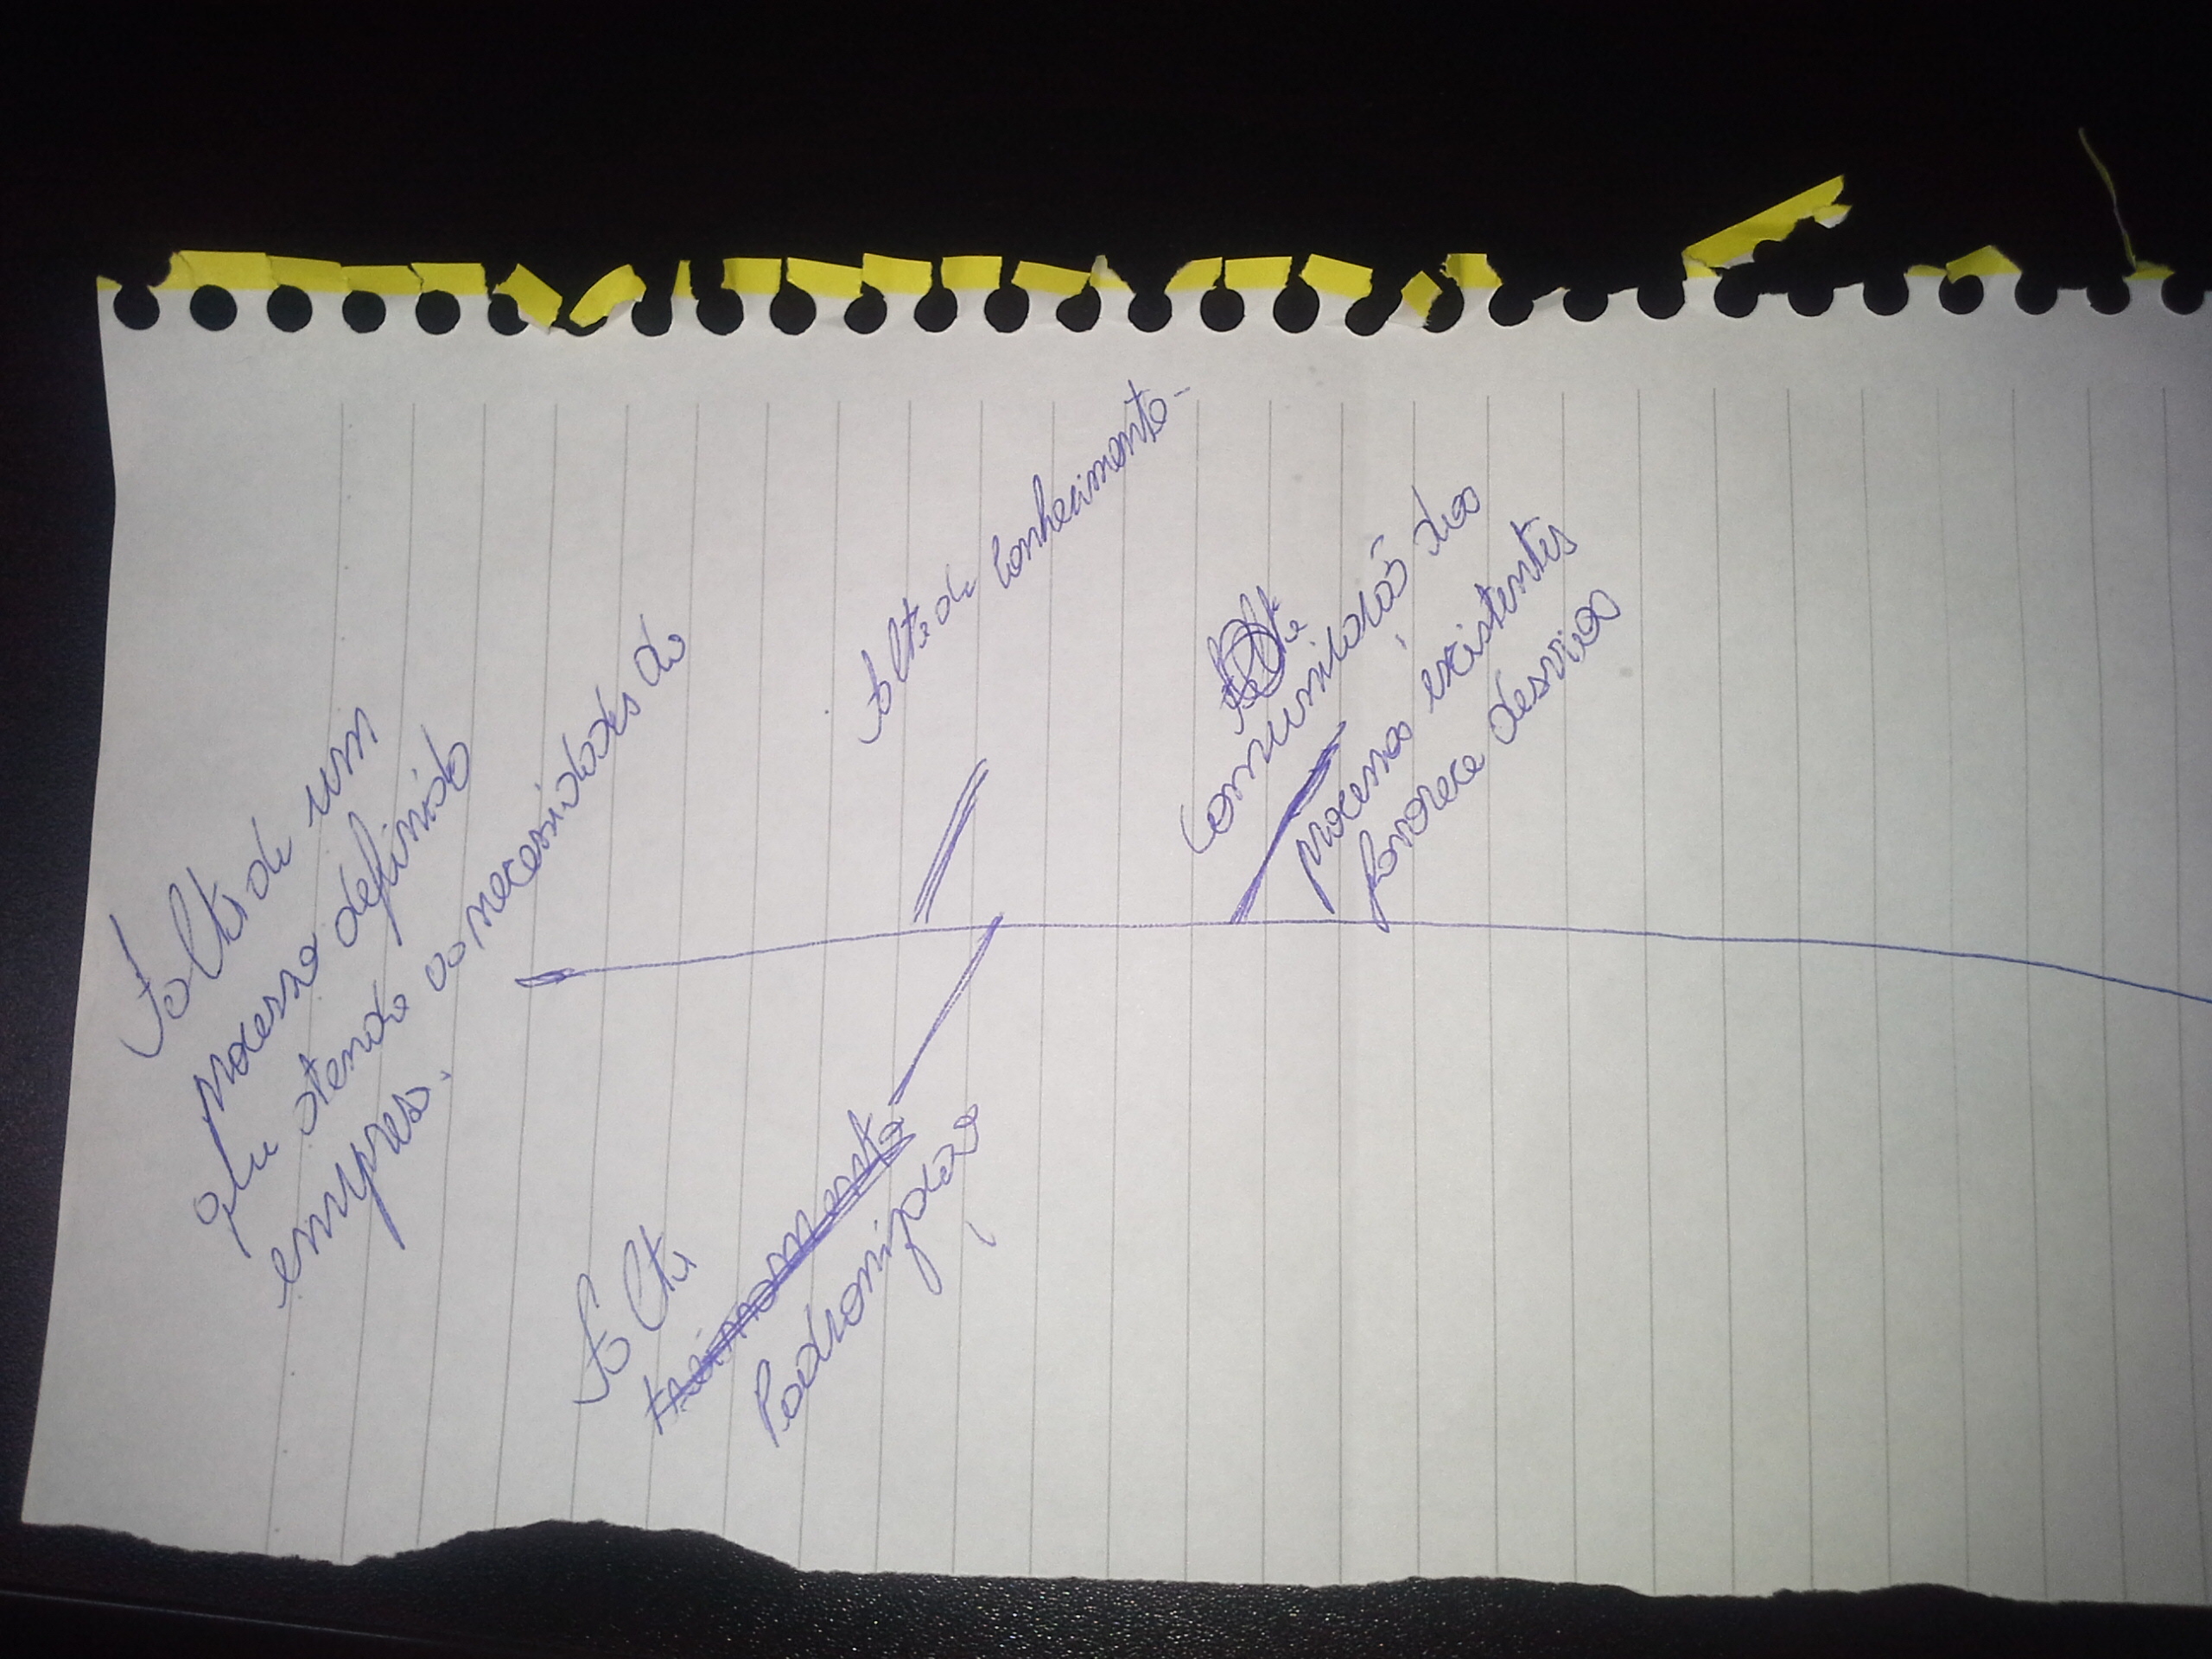 Falta de um
processo definido
que atende as necessidades da
empresa.
falta de conhecimento
Comunicação dos
processos existentes
favorece desvios
Falta
treinamento
Padronização